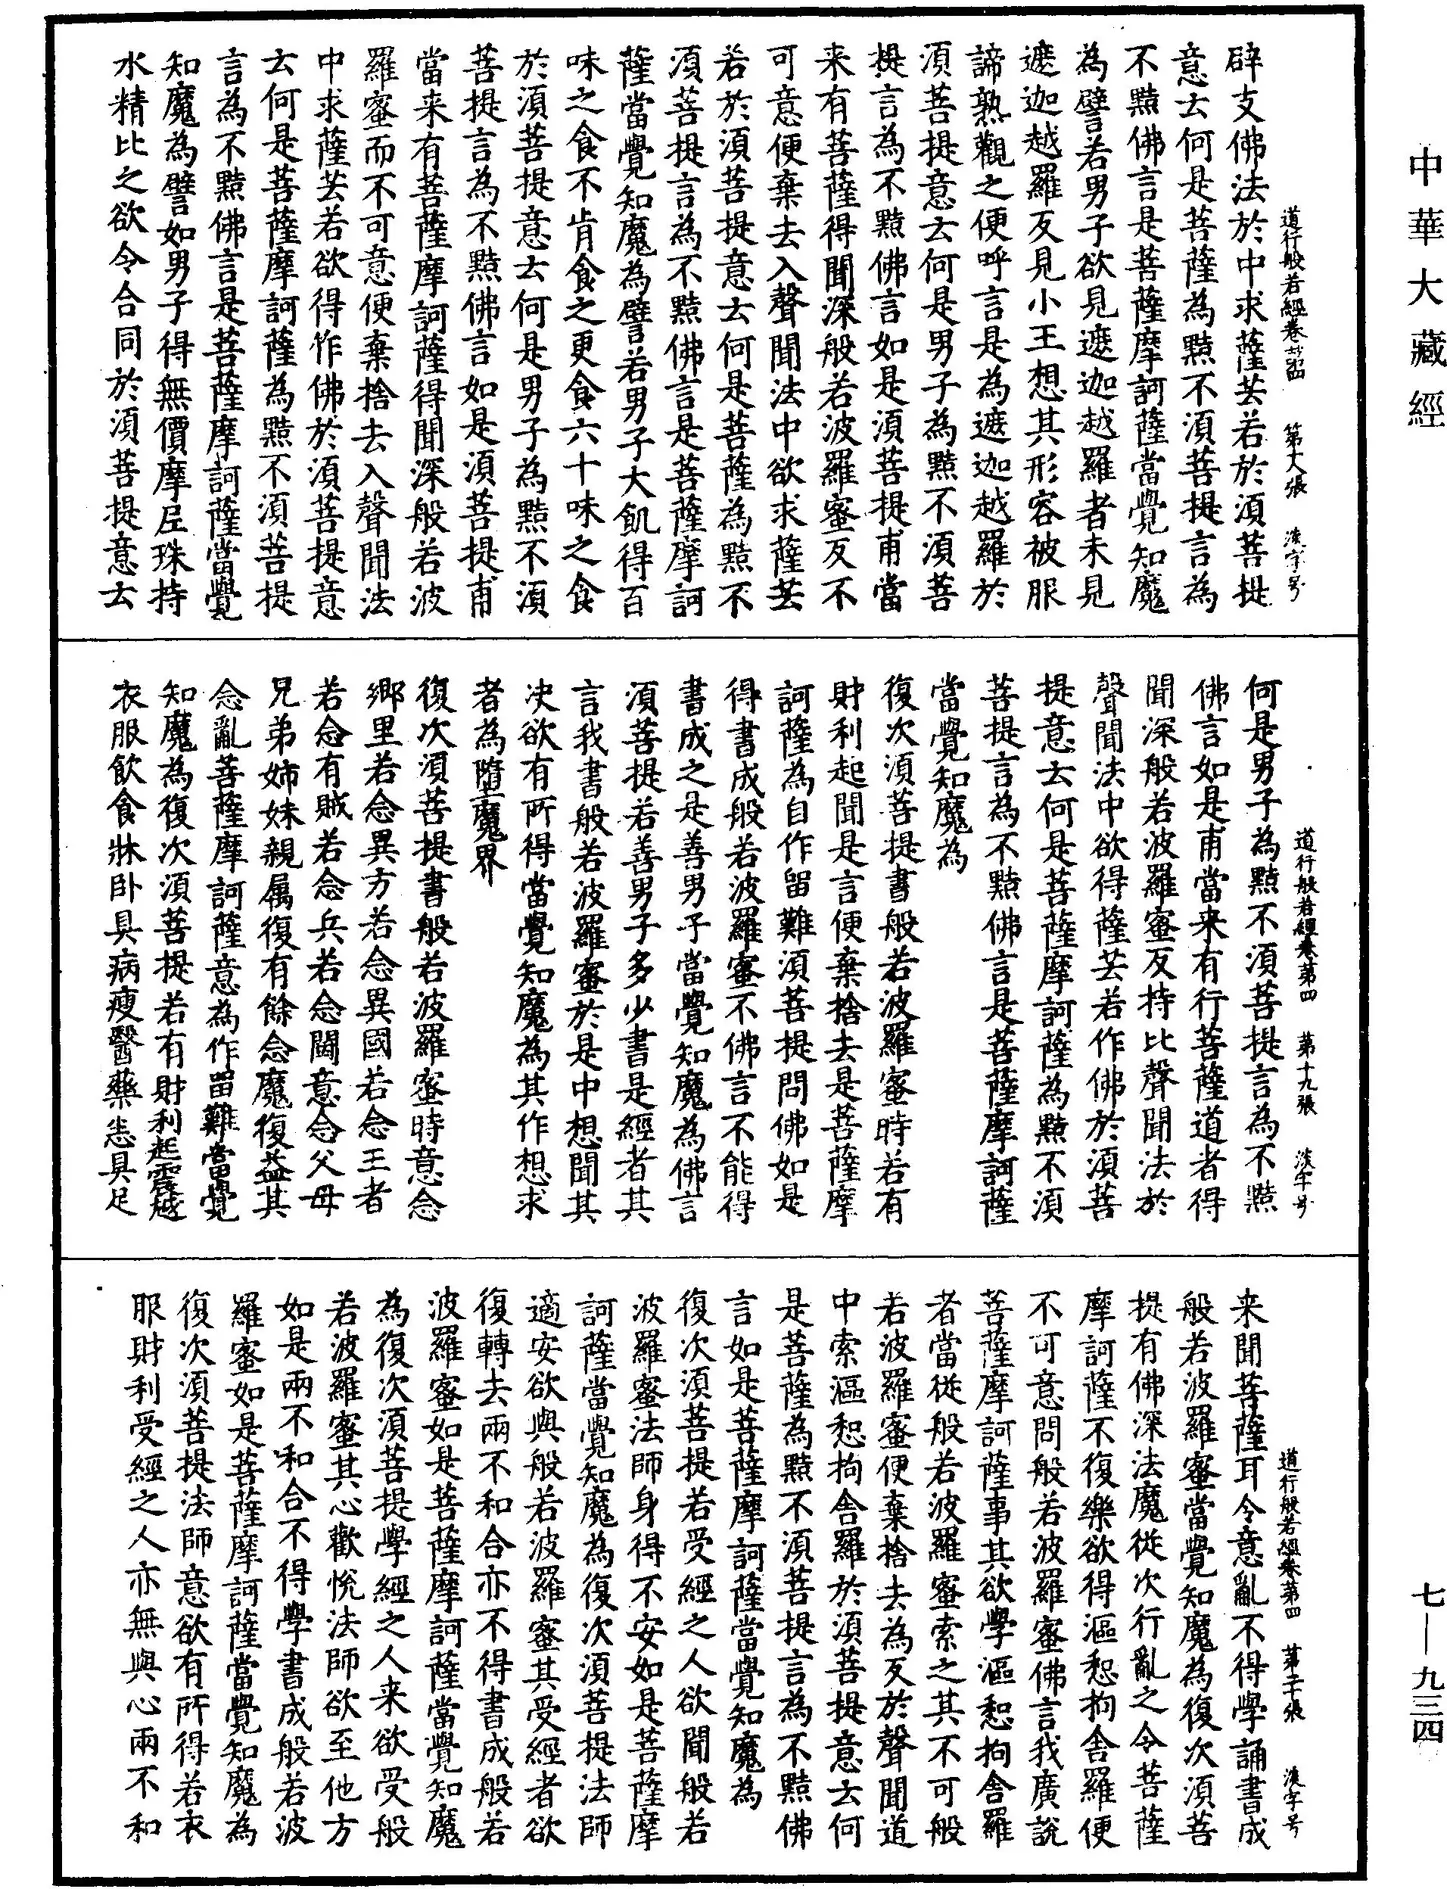 中華大藏經
道行般若經卷第四 第大張 淡字号
辟支佛法於中求薩芸若於須菩提
意云何是菩薩為黠不須菩提言為
不黠佛言是菩薩摩訶薩當覺知魔
為譬若男子欲見遮迦越羅者未見
遮迦越羅反見小王想其形容被服
諦熟觀之便呼言是為遮迦越羅於
須菩提意云何是男子為黠不須菩
提言為不黠佛言如是須菩提甫當
来有菩薩得聞深般若波羅蜜反不
可意便棄去入聲聞法中欲求薩芸
若於須菩提意云何是菩薩為黠不
須菩提言為不黠佛言是菩薩摩訶
薩當覺知魔為譬若男子大飢得百
味之食不肯食之更食六十味之食
於須菩提意云何是男子為黠不須
菩提言為不黠佛言如是須菩提甫
當来有菩薩摩訶薩得聞深般若波
羅蜜而不可意便棄捨去入聲聞法
中求薩芸若欲得作佛於須菩提意
云何是菩薩摩訶薩為黠不須菩提
言為不黠佛言是菩薩摩訶薩當覺
知魔為譬如男子得無價摩尼珠持
水精比之欲令合同於須菩提意云
道行般若經卷第四 第十九張 淡字号
何是男子為黠不須菩提言為不黠
佛言如是甫當来有行菩薩道者得
聞深般若波羅蜜反持比聲聞法於
聲聞法中欲得薩芸若作佛於須菩
提意云何是菩薩摩訶薩為黠不須
菩提言為不黠佛言是菩薩摩訶薩
當覺知魔為
復次須菩提書般若波羅蜜時若有
財利起聞是言便棄捨去是菩薩摩
訶薩為自作留難須菩提問佛如是
得書成般若波羅蜜不佛言不能得
書成之是善男子當覺知魔為佛言
須菩提若善男子多少書是經者其
言我書般若波羅蜜於是中想聞其
决欲有所得當覺知魔為其作想求
者為墮魔界
復次須菩提書般若波羅蜜時意念
鄉里若念異方若念異國若念王者
若念有賊若念兵若念鬪意念父母
兄弟姉妹親属復有餘念魔復益其
念亂菩薩摩訶薩意為作留難當覺
知魔為復次須菩提若有財利起震越
衣服飲食牀卧具病瘦醫藥悉具足
道行般若經卷第四 第二十張 淡字号
来聞菩薩耳令意亂不得學誦書成
般若波羅蜜當覺知魔為復次須菩
提有佛深法魔從次行亂之令菩薩
摩訶薩不復樂欲得漚惒拘舍羅便
不可意問般若波羅蜜佛言我廣說
菩薩摩訶薩事其欲學漚惒拘舍羅
者當從般若波羅蜜索之其不可般
若波羅蜜便棄捨去為反於聲聞道
中索漚惒拘舍羅於須菩提意云何
是菩薩為黠不須菩提言為不黠佛
言如是菩薩摩訶薩當覺知魔為
復次須菩提若受經之人欲聞般若
波羅蜜法師身得不安如是菩薩摩
訶薩當覺知魔為復次須菩提法師
適安欲與般若波羅蜜其受經者欲
復轉去兩不和合亦不得書成般若
波羅蜜如是菩薩摩訶薩當覺知魔
為復次須菩提學經之人来欲受般
若波羅蜜其心歡悅法師欲至他方
如是兩不和合不得學書成般若波
羅蜜如是菩薩摩訶薩當覺知魔為
復次須菩提法師意欲有所得若衣
服財利受經之人亦無與心兩不和
七—九三四